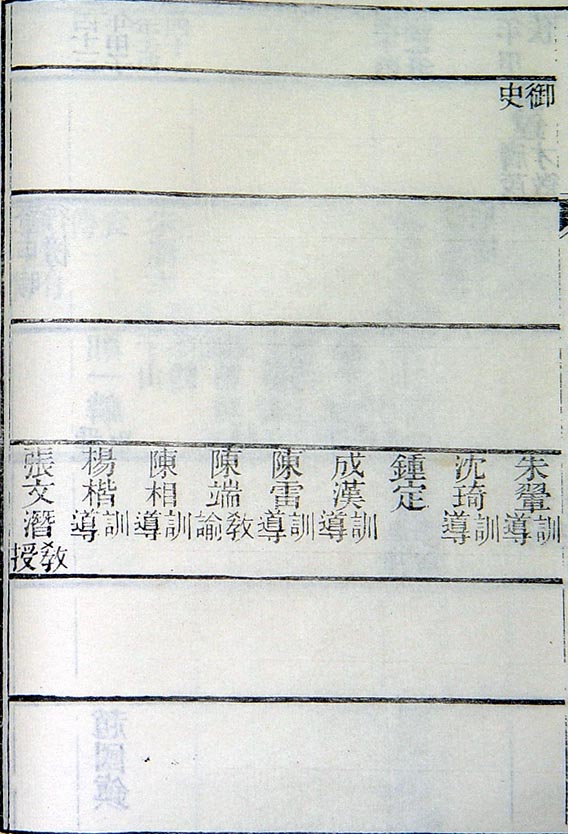 御史
朱翬訓導
沈琦訓導
鍾定
成漢訓導
陳雷訓導
陳端敎諭
陳相訓導
楊楷訓導
張文濳敎授